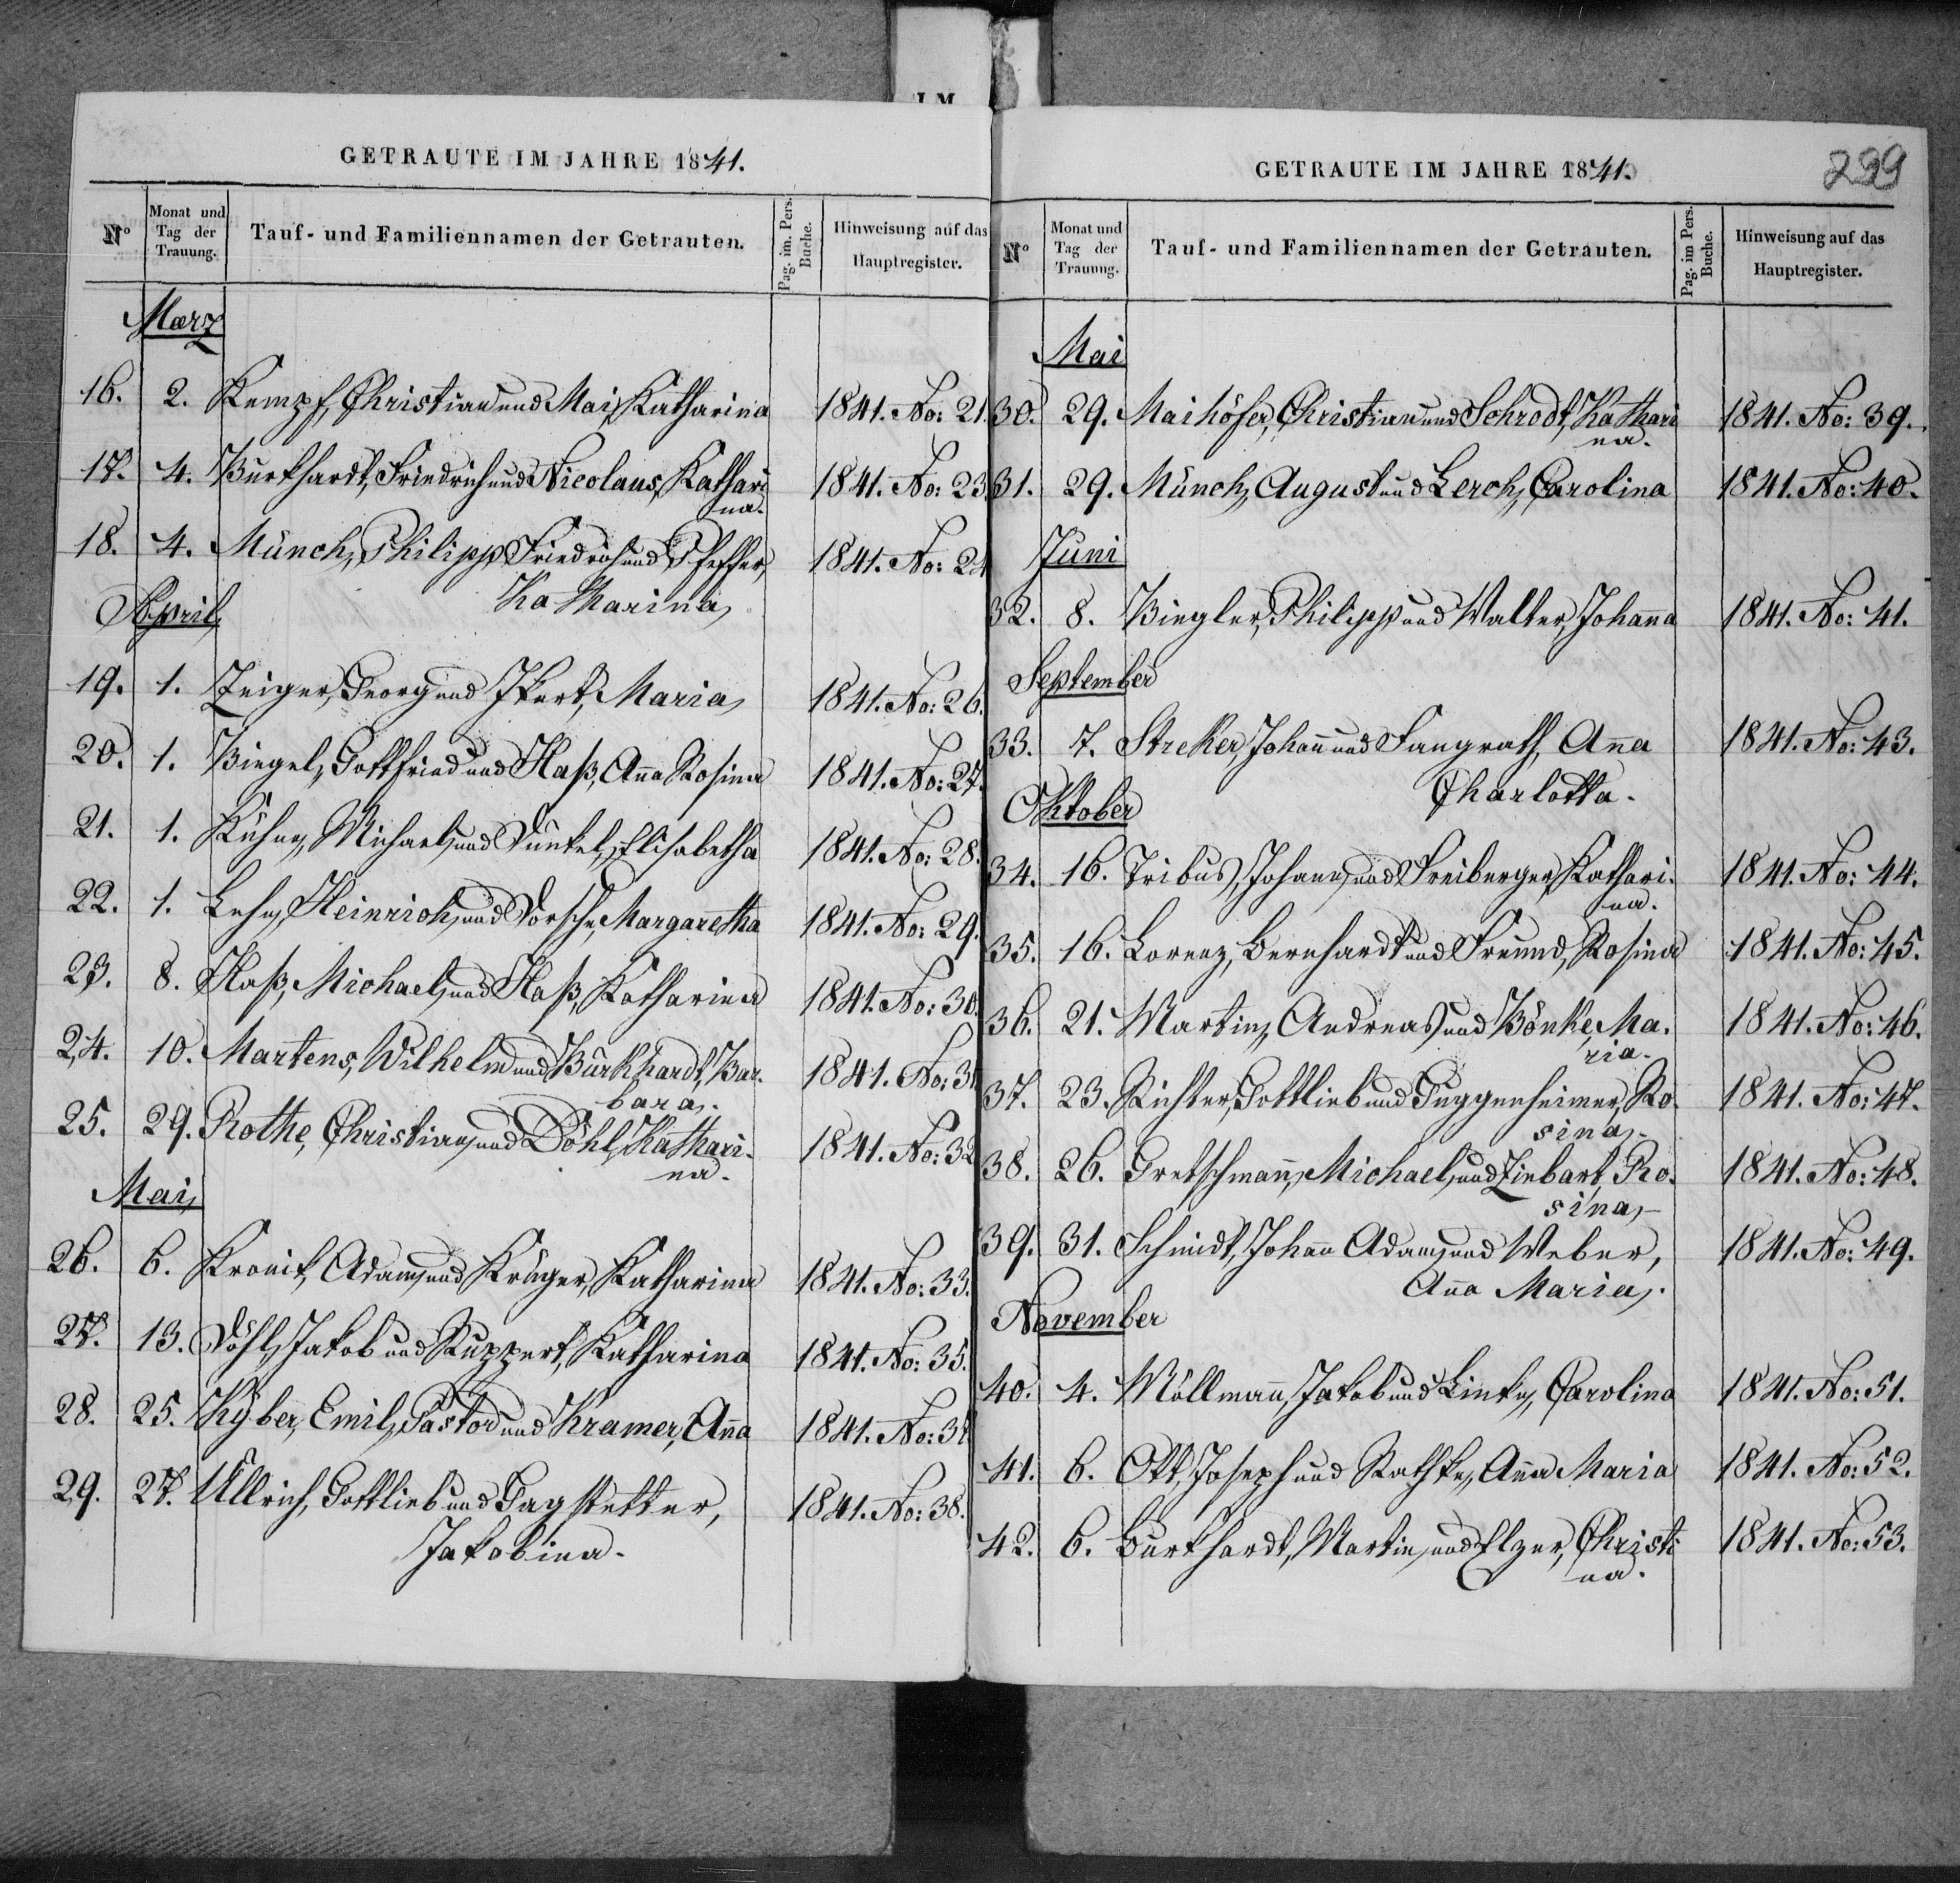 IM
GETRAUTE IM JAHRE 1841.
N° Monat und Tag der Trauung. Tauf- und Familiennamen der Getrauten. Pag. im. Pers. Buche. Hinweisung auf das Hauptregister.
Maerz
16. 2. Kempf, Christian und Mai, Katharina 1841. No: 21.
17. 4. Burkhardt, Friedrich und Nicolaus, Kathari
na.
1841. No: 23.
18. 4. Münch, Philipp Friedrich und Pfeffer, 1841. No: 24
Katharina
April
19. 1. Zeiger, Georg und Ikert, Maria 1841. No: 26.
20. 1. Biegel, Gottfried und Haß, Anna Rosina 1841. No: 27.
21. 1. Kühn, Michael und Dunkel, Elisabetha 1841. No: 28.
22. 1. Lehn, Heinrich und Dorsch, Margaretha 1841. No: 29.
23. 8. Haß, Michael und Haß, Katharina 1841. No: 30.
24. 10. Martens, Wilhelm und Burkhardt, Bar- 1841. No: 31
bara.
25. 29. Rothe, Christian und Döhl, Kathari- 1841. No: 32
na.
Mai
26. 6. Kronik, Adam und Krüger, Katharina 1841. No: 33.
27. 13. Döhl, Jakob und Ruppert, Katharina 1841. No: 35.
28. 25. Kyber, Emil, Pastor und Kramer, Anna 1841. No: 37
29. 27. Ullrich, Gottlieb und Tagstetter, 1841. No: 38.
Jakobina.
GETRAUTE IM JAHRE 1841.
299
N° Monat und Tag der Trauung. Tauf- und Familiennamen der Getrauten. Pag. im Pers. Buche. Hinweisung auf das Hauptregister.
Mai
30. 29. Maihöfer, Christian und Schrodt, Kathari 1841. No: 39.
na.
31. 29. Münch, August und Lerch, Carolina 1841. No: 40.
Juni
32. 8. Biegler, Philipp und Walter, Johanna 1841. No: 41.
September
33. 7. Streker, Johann und Fangrath, Anna 1841. No: 43.
Charlotta.
Oktober
34. 16. Tribus, Johann und Freiberger, Kathari- 1841. No: 44.
na.
35. 16. Lorenz, Bernhardt und Freund, Rosina 1841. No: 45.
36. 21. Martin, Andreas und Bönke, Ma- 1841. No: 46.
ria.
37. 23. Richter, Gottlieb und Guggenheimer, Ro- 1841. No: 47.
sina.
38. 26. Gretschmann, Michael und Ziebart, Ro- 1841. No: 48.
sina.
39. 31. Schmidt, Johann Adam und Weber, 1841. No: 49.
Anna Maria.
November
40. 4. Möllmann, Jakob und Linke, Carolina 1841. No: 51.
41. 6. Ott, Joseph und Rathke, Anna Maria 1841. No: 52.
42. 6. Burkhardt, Martin und Elzer, Christi 1841. No: 53.
na.